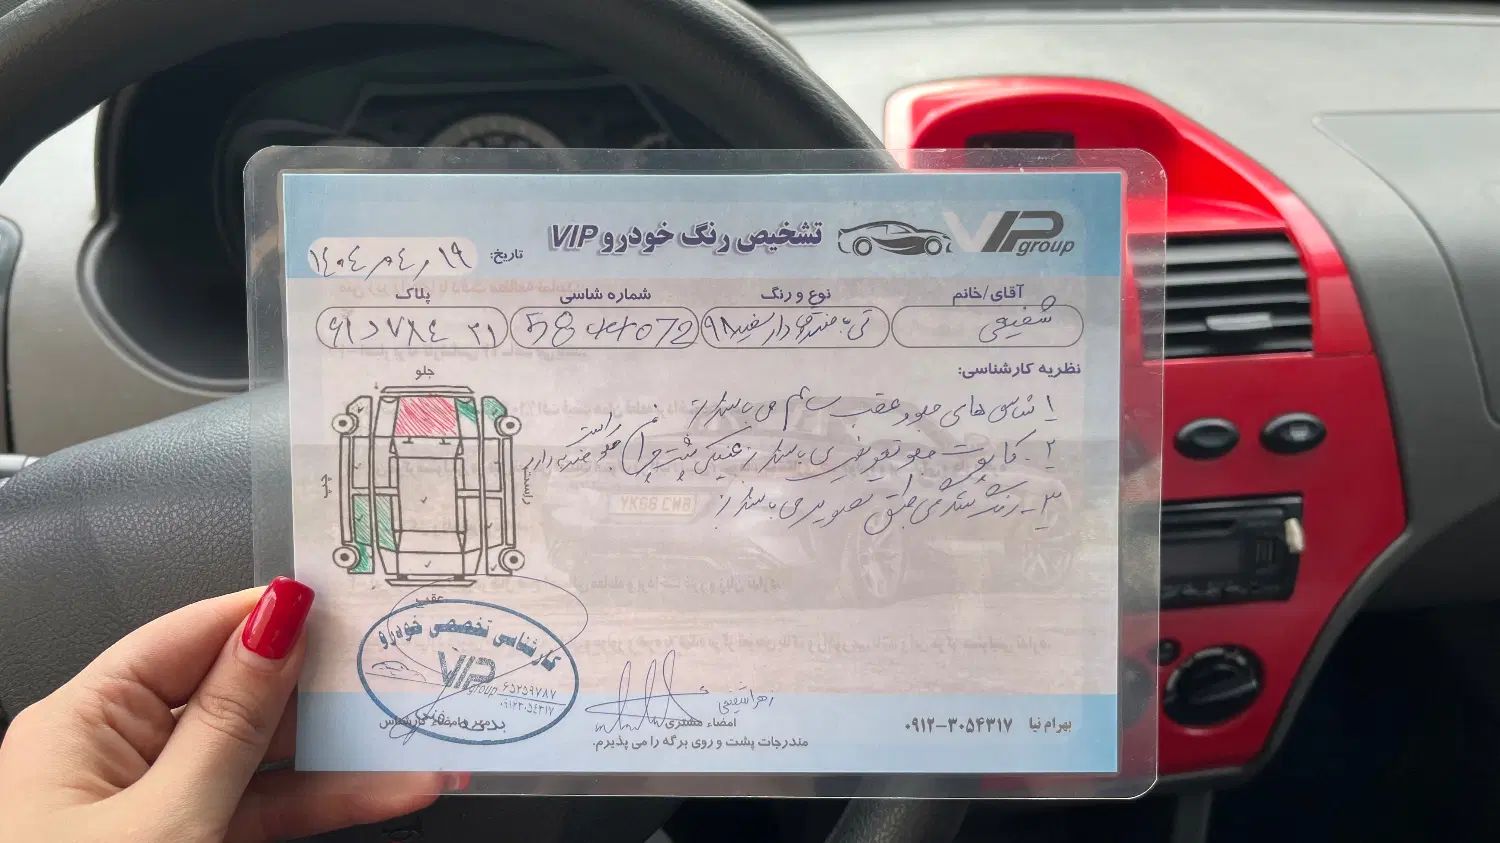 تشخیص رنگ خودرو VIP
VIP group
تاریخ: ۱۴۰۴٫۰۴٫۱۹
آقای/خانم
نوع و رنگ
شماره شاسی
پلاک
شفیعی
تیبا صندوق دار سفید ۹۸
5844072
۲۱ ۷۸۴ د ۶۱
نظریه کارشناسی:
۱ـ شاسی های جلو و عقب سالم می باشد
۲ـ کاپوت جلو تعویض می باشد
۳ـ رنگ شدگی طبق تصویر می باشد
جلو
چپ
راست
عقب
YK66 CWB
کارشناسی تخصصی خودرو
VIP group
۶۵۲۵۹۷۸۷
۰۹۱۲۳۰۵۴۳۱۷
مهر و امضاء کارشناس
زهرا شفیعی
امضاء مشتری
مندرجات پشت و روی برگه را می پذیرم.
بهرام نیا ۰۹۱۲-۳۰۵۴۳۱۷